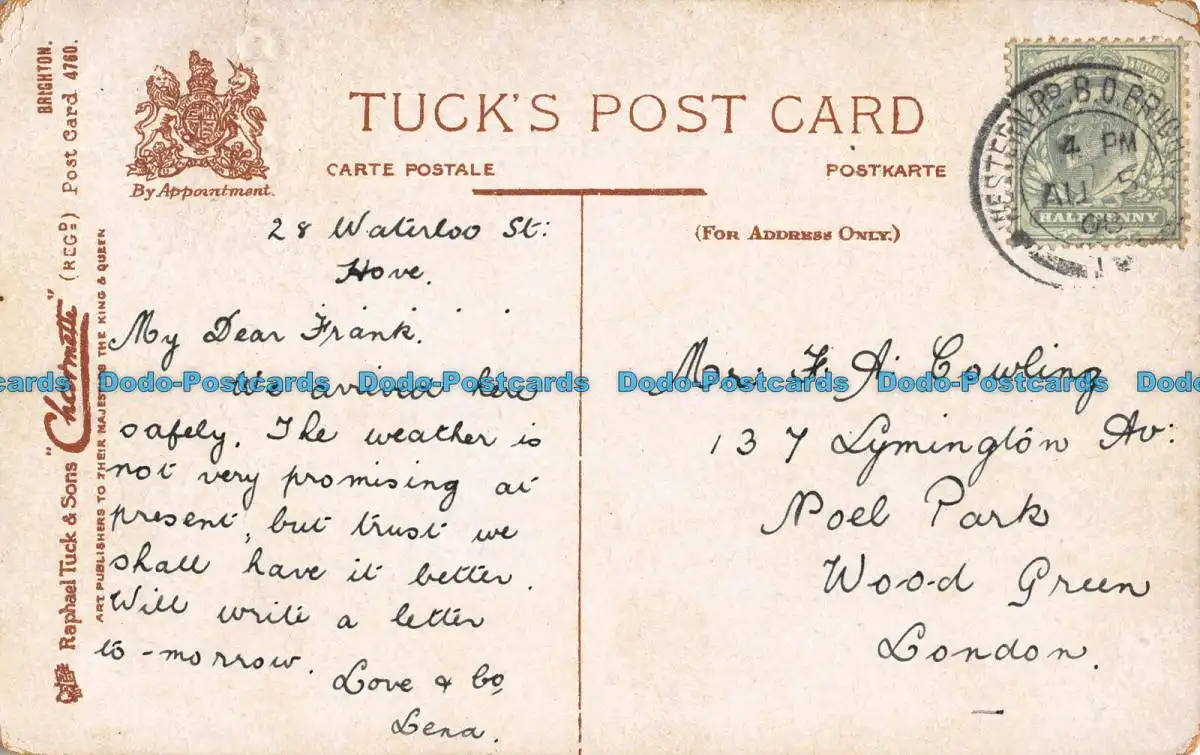 BRIGHTON.
Raphael Tuck & Sons "Charmette" (REGD) Post Card 4760.
ART PUBLISHERS TO THEIR MAJESTIES THE KING & QUEEN
By Appointment.
TUCK'S POST CARD
CARTE POSTALE
POSTKARTE
(FOR ADDRESS ONLY.)
POSTAGE & REVENUE
HALFPENNY
WESTERN RD. B.O. BRIGHTON
4 PM
AU 5
28 Waterloo St:
Hove.
My Dear Frank.
We arrived here
safely. The weather is
not very promising at
present, but trust we
shall have it better.
Will write a letter
to-morrow.
Love & Co,
Lena.
Mr: F. A. Cowling
137 Lymington Av:
Noel Park
Wood Green
London.
Dodo-Postcards Dodo-Postcards Dodo-Postcards Dodo-Postcards